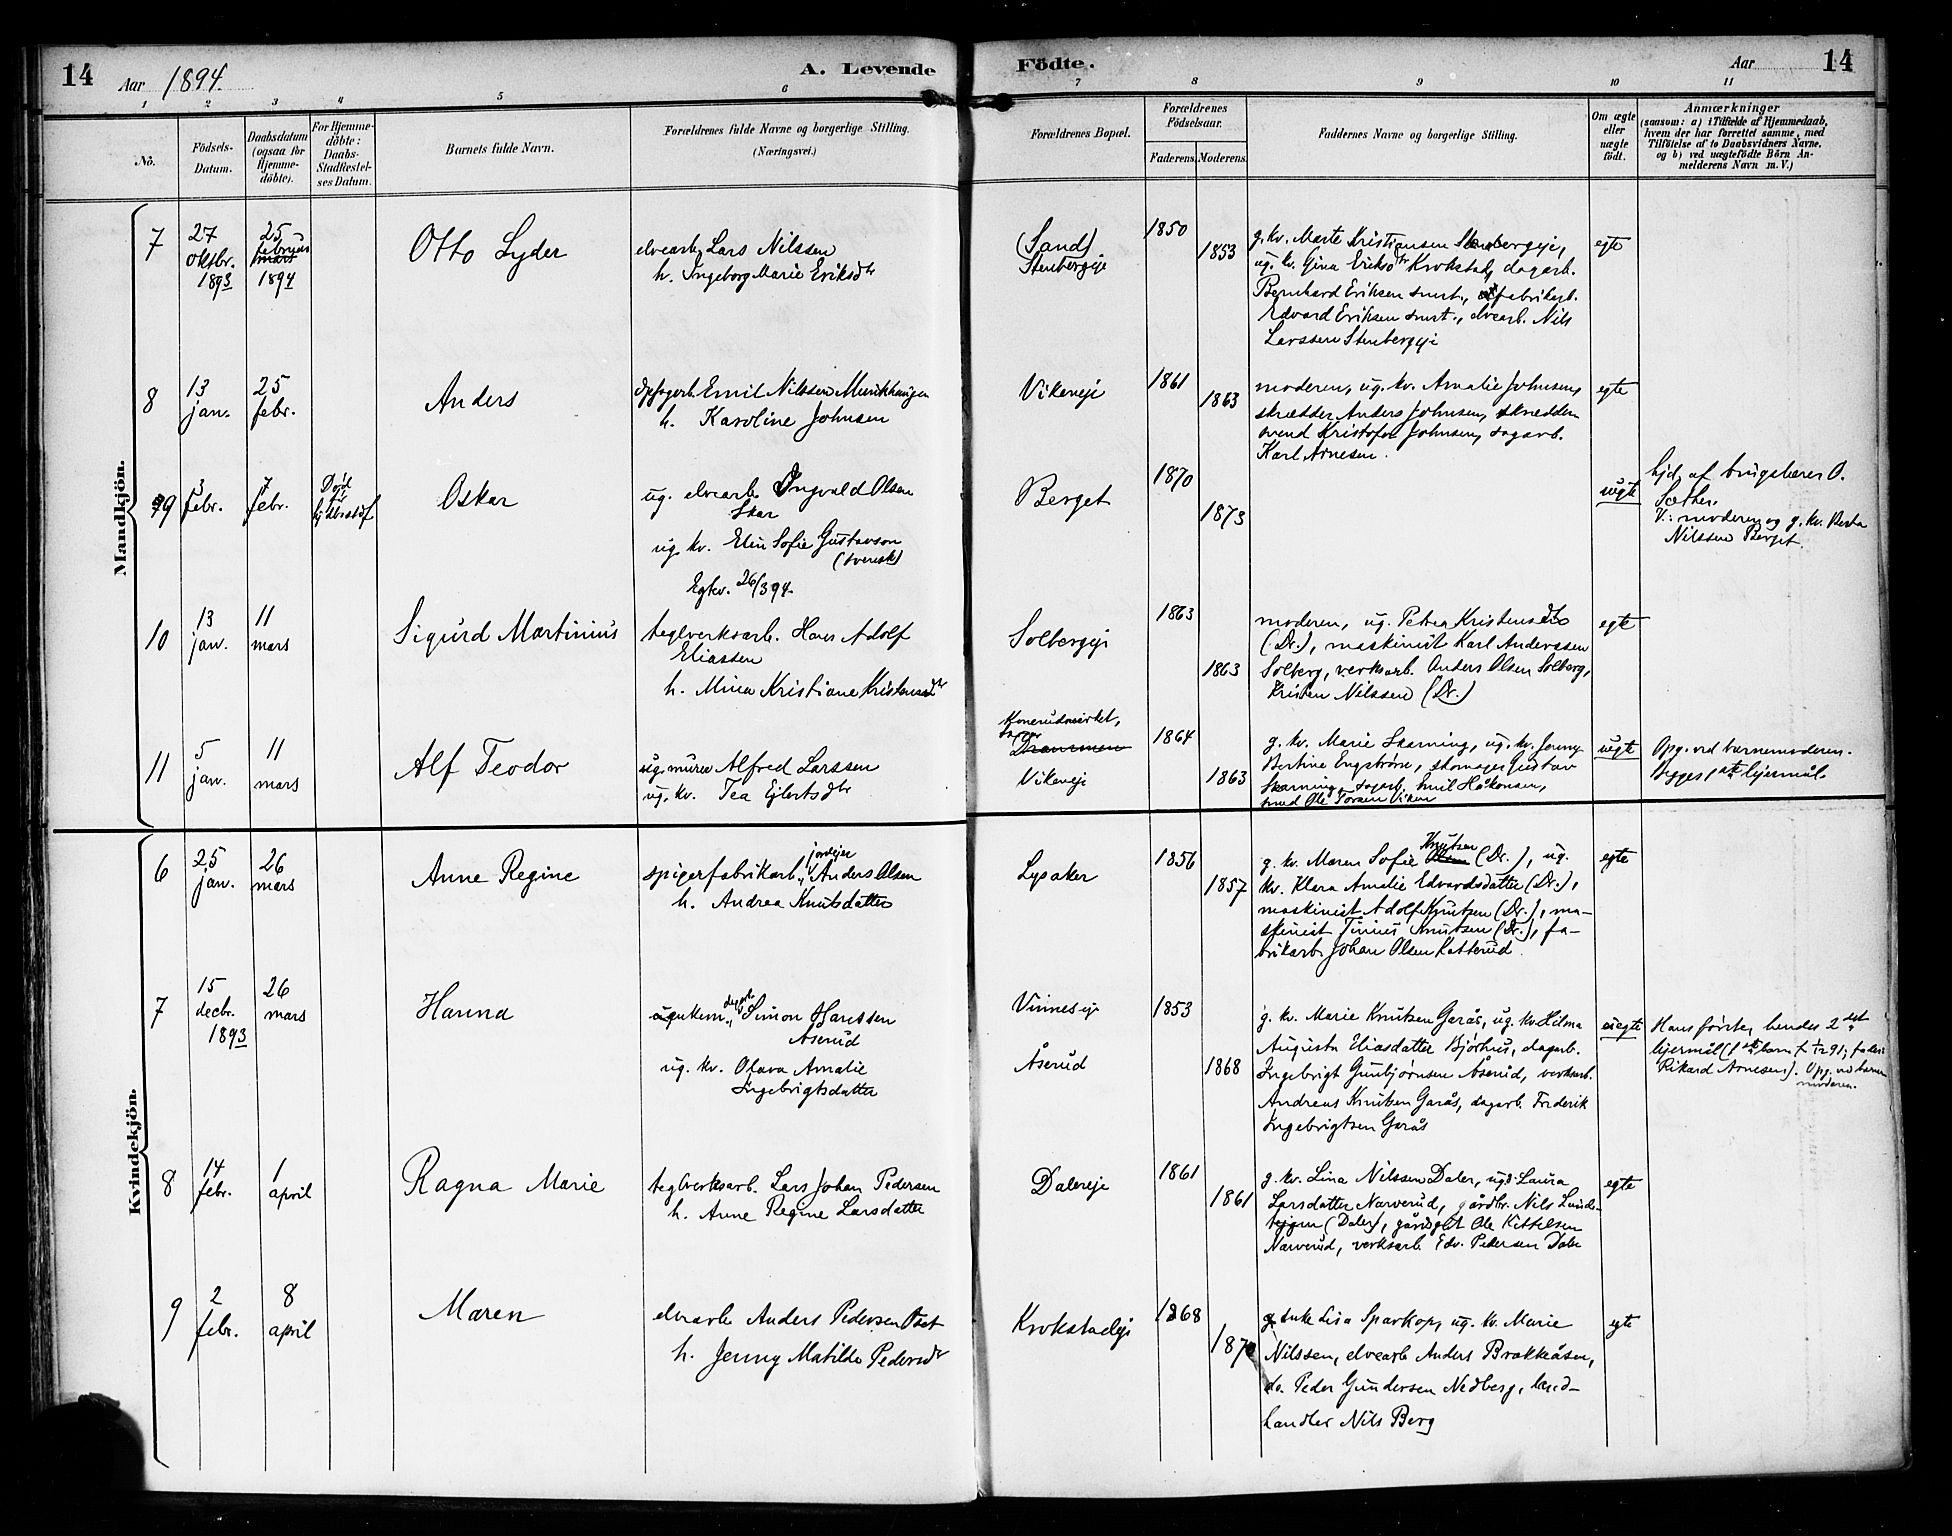 14
Aar 1894.
A. Levende
Födte.
Aar
14
1
2
3
4
5
6
7
8
9
10
11
No.
Födsels-
Datum.
Daabsdatum
(ogsaa for
Hjemme-
döbte).
For Hjemme-
döbte:
Daabs-
Stadfæstel-
ses Datum.
Barnets fulde Navn.
Forældrenes fulde Navne og borgerlige Stilling.
(Næringsvei.)
Forældrenes Bopæl.
Forældrenes
Födselsaar.
Faderens.
Moderens.
Faddernes Navne og borgerlige Stilling.
Om ægte
eller
uægte
födt.
Anmærkninger
(saasom: a) i Tilfælde af Hjemmedaab,
hvem der har forrettet samme, med
Tilföielse af to Daabsvidners Navne,
og b) ved uægtefödte Börn An-
melderens Navn m. V.)
Mandkjön.
7
27
oktbr.
1893
25
februar
mars
1894
Otto Lyder
elvearb. Lars Nilssen
h. Ingeborg Marie Eriksdtr
(Sand)
Stenbergeje
1850
1853
g. kv. Marte Kristiansen Stenbergeje,
ug. kv. Gina Eriksdtr Krokstad, dagarb.
Bernhard Eriksen smst., fabrikarb.
Edvard Eriksen smst., elvearb. Nils
Larssen Stenbergeje
egte
8
13
jan.
25
febr.
Anders
Emil Nilssen Munkhaugen
h. Karoline Johnsen
Vikeneje
1861
1863
moderen, ug. kv. Amalie Johnsen,
skrædder Anders Johnsen, skrædder
svend Kristofer Johnsen, sagarb.
Karl Arnesen.
egte
9
3
febr.
7
febr.
Död
før
Oskar
ug. elvearb. Ingvald Olsen
Skar
ug. kv. Elin Sofie Gustavson
(svensk)
Egtev. 26/3 94.
Berget
1870
1873
uegte
hjd. af brugsbærer O.
Sæther.
V.: moderen og g. kv. Berta
Nilssen Berget.
10
13
jan.
11
mars
Sigurd Martinius
teglverksarb. Hans Adolf
Eliassen
h. Mina Kristiane Kristensdtr
Solbergeje
1863
1863
moderen, ug. Petra Kristensdtr
(Dr.), maskinist Karl Anderssen
Solberg, verksarb. Anders Olsen Solberg,
Kristen Nilssen (Dr.)
egte
11
5
jan.
11
mars
Alf Teodor
ug. murer Alfred Larssen
ug. kv. Tea Ejlertsdtr
Drammen
Vikeneje
1864
1863
g. kv. Marie Skarning, ug. kv. Jenny
Bertine Engström, skomager Gustav
Skarning, sagarb. Emil Håkonsen,
smed Ole Torsen Viken
uegte
Opg. ved barnemoderen.
Begges 1ste lejermål.
Kvindekjön.
6
25
jan.
26
mars
Anne Regine
jordejer
spigerfabrikarb. Anders Olsen
h. Andrea Knutsdatter
Lysaker
1856
1857
Knutsen
g. kv. Maren Sofie Olsen (Dr.), ug.
kv. Klara Amalie Edvardsdatter (Dr.),
maskinist Adolf Knutsen (Dr.), ma-
skinist Tinius Knutsen (Dr.), fa-
brikarb. Johan Olsen Katterud.
egte
7
15
decbr.
1893
26
mars
Hanna
dagarb.
enkem. Simon Hanssen
Åserud
ug. kv. Olava Amalie
Ingebrigtsdatter
Vinnesej
Åserud
1853
1868
g. kv. Marie Knutsen Garås, ug. kv. Hilma
Augusta Eliasdatter Bjørhus, dagarb.
Ingebrigt Gunbjørnsen Åserud, verksarb.
Andreas Knutsen Garås, dagarb. Frederik
Ingebrigtsen Garås
uegte
Hans første, hendes 2det
lejermål (1ste barn f. 1/12 91; fader:
Rikard Arnesen). Opg. ved barne
moderen.
8
14
febr.
1
april
Ragna Marie
teglverksarb. Lars Johan Pedersen
h. Anne Regine Larsdatter
Dalereje
1861
1861
g. kv. Lina Nilssen Daler, ug. Laura
Larsdatter Narverud, gårdbr. Nils Lunds-
tejgen (Daler), Ole Kittelsen
Narverud, verksarb. Edv. Pedersen Daler
egte
9
2
febr.
8
april
Maren
elvearb. Anders Pedersen
h. Jenny Matilde Pedersdtr
Krokstadeje
1868
187
enke Lisa Sparkop, ug. kv. Marie
Nilssen, elvearb. Anders Brakkeåsen,
do. Peder Gundersen Nedberg, land-
handler Nils Berg
egte